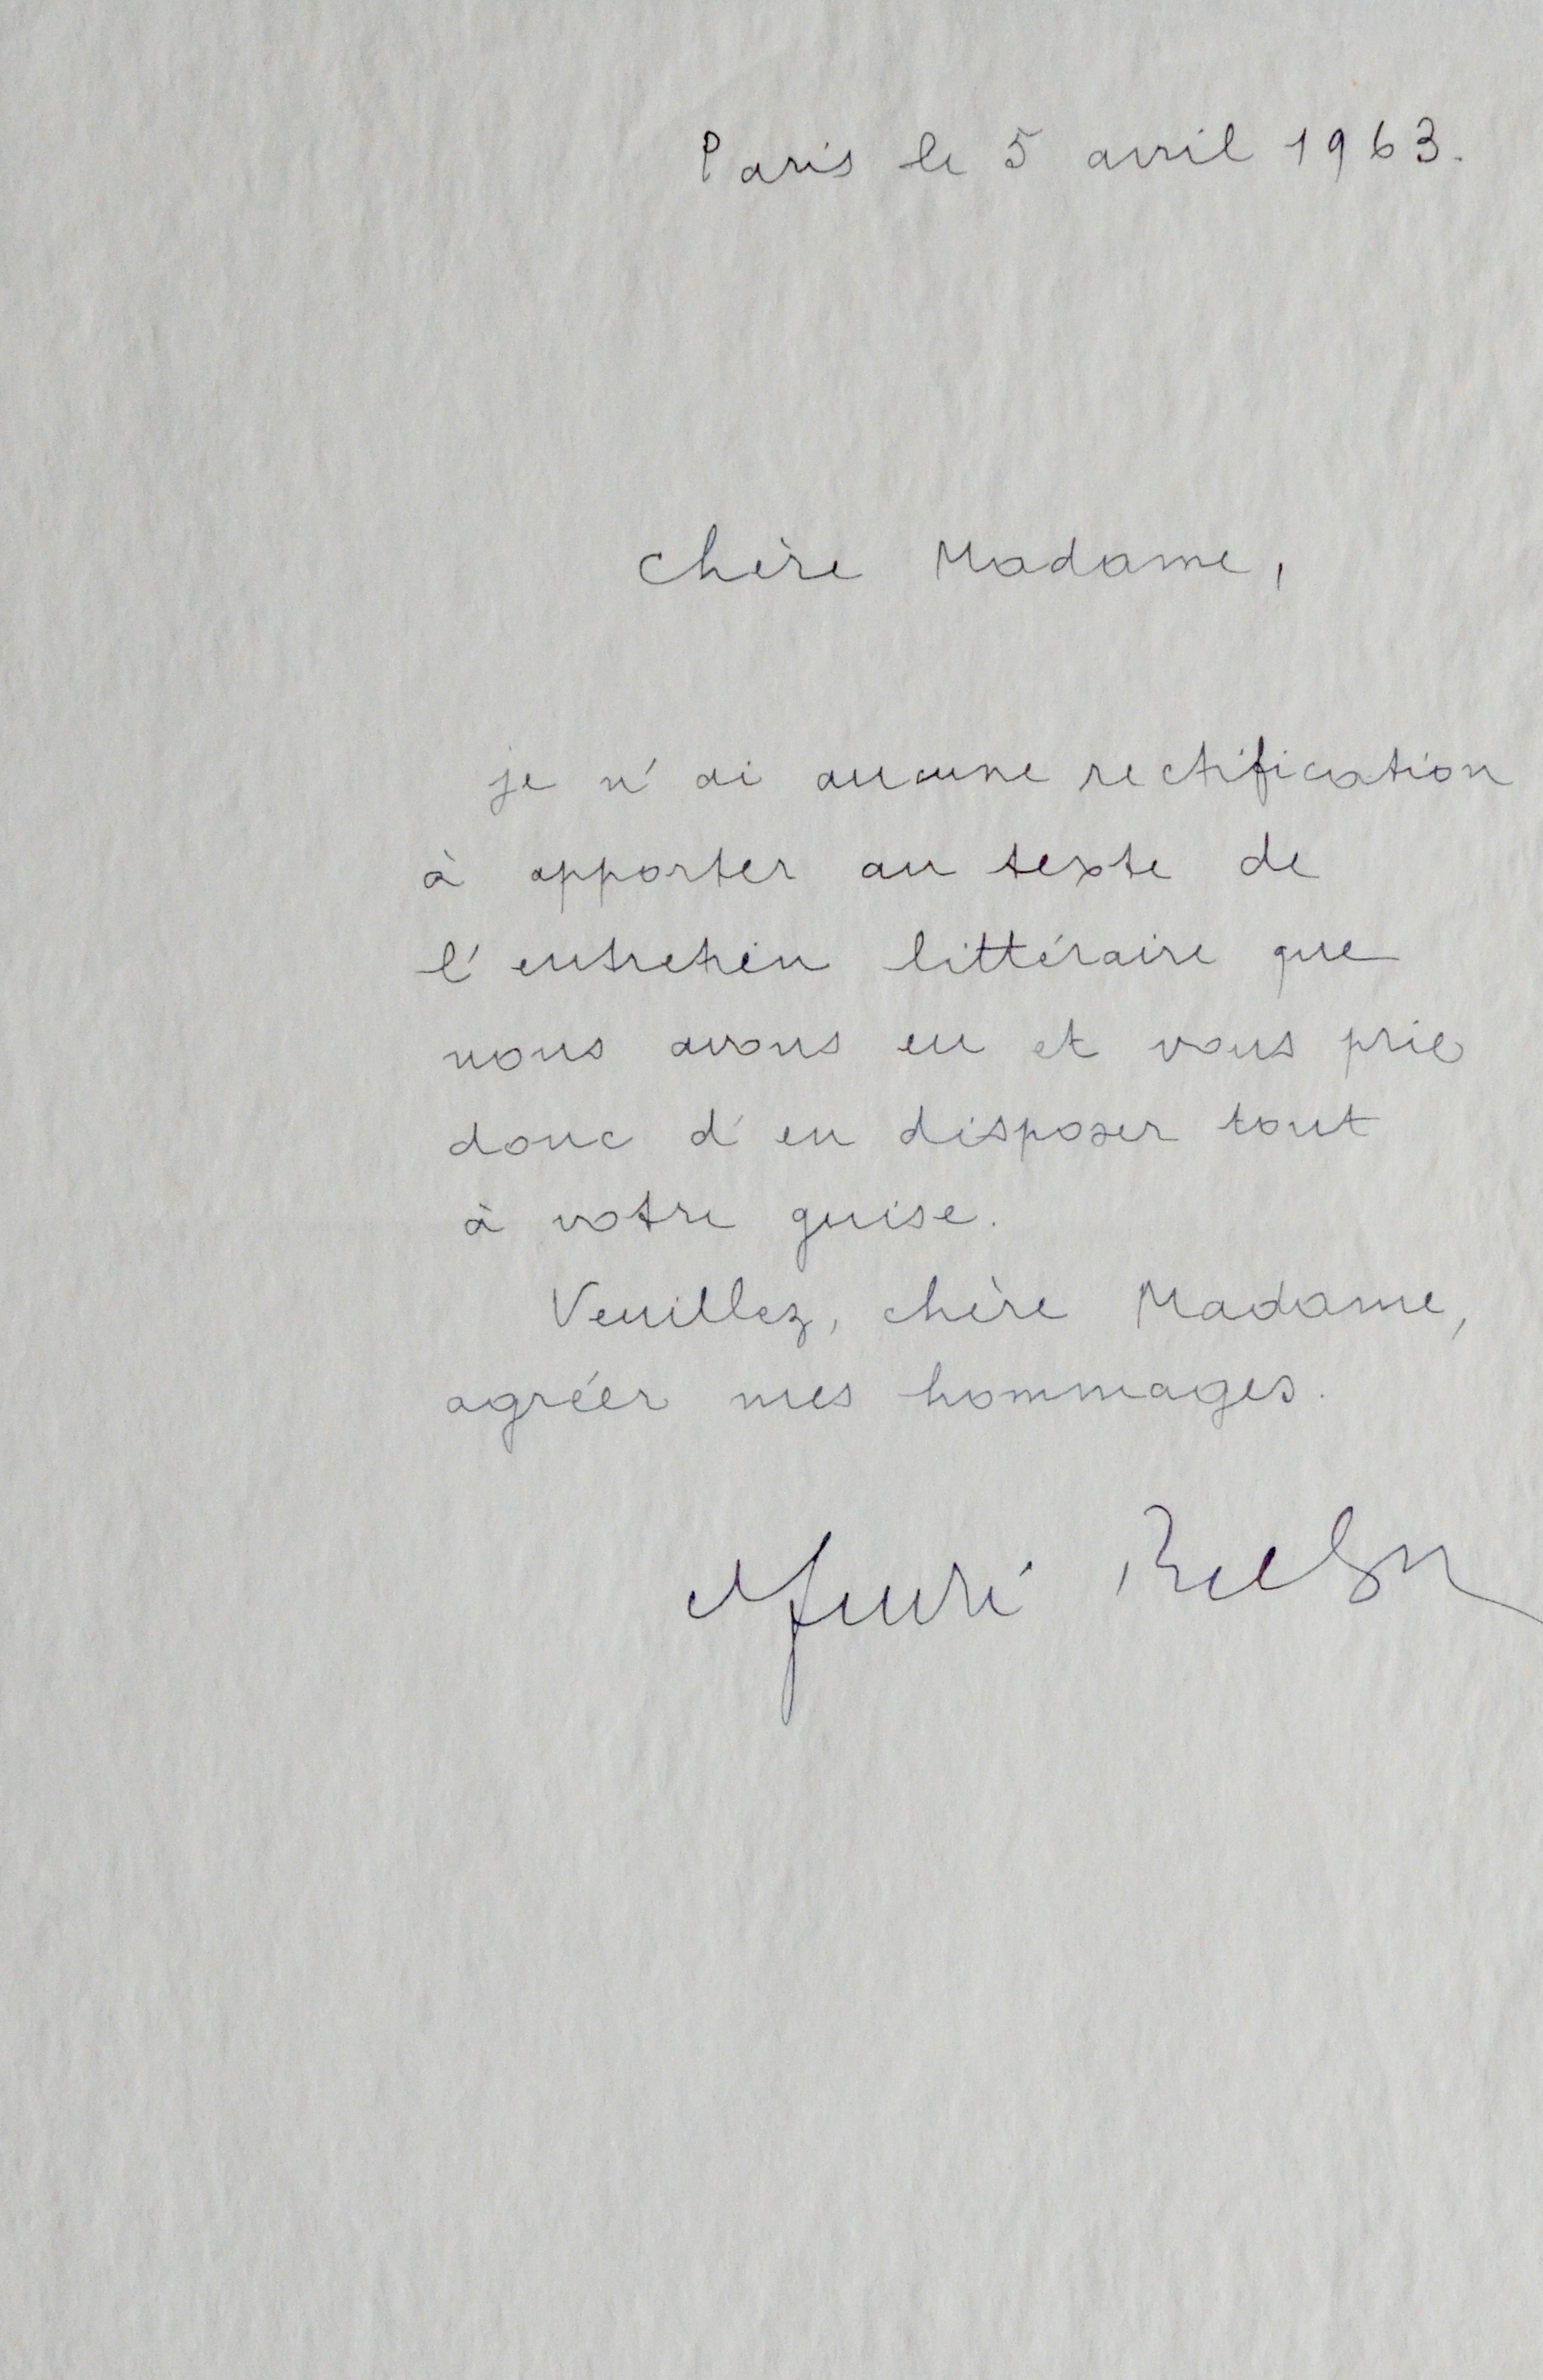 Paris le 5 avril 1963.
chère Madame,
je n'ai aucune rectification
à apporter au texte de
l'entretien littéraire que
nous avons eu et vous prie
donc d'en disposer tout
à votre guise.
Veuillez, chère Madame,
agréer mes hommages.
Henri